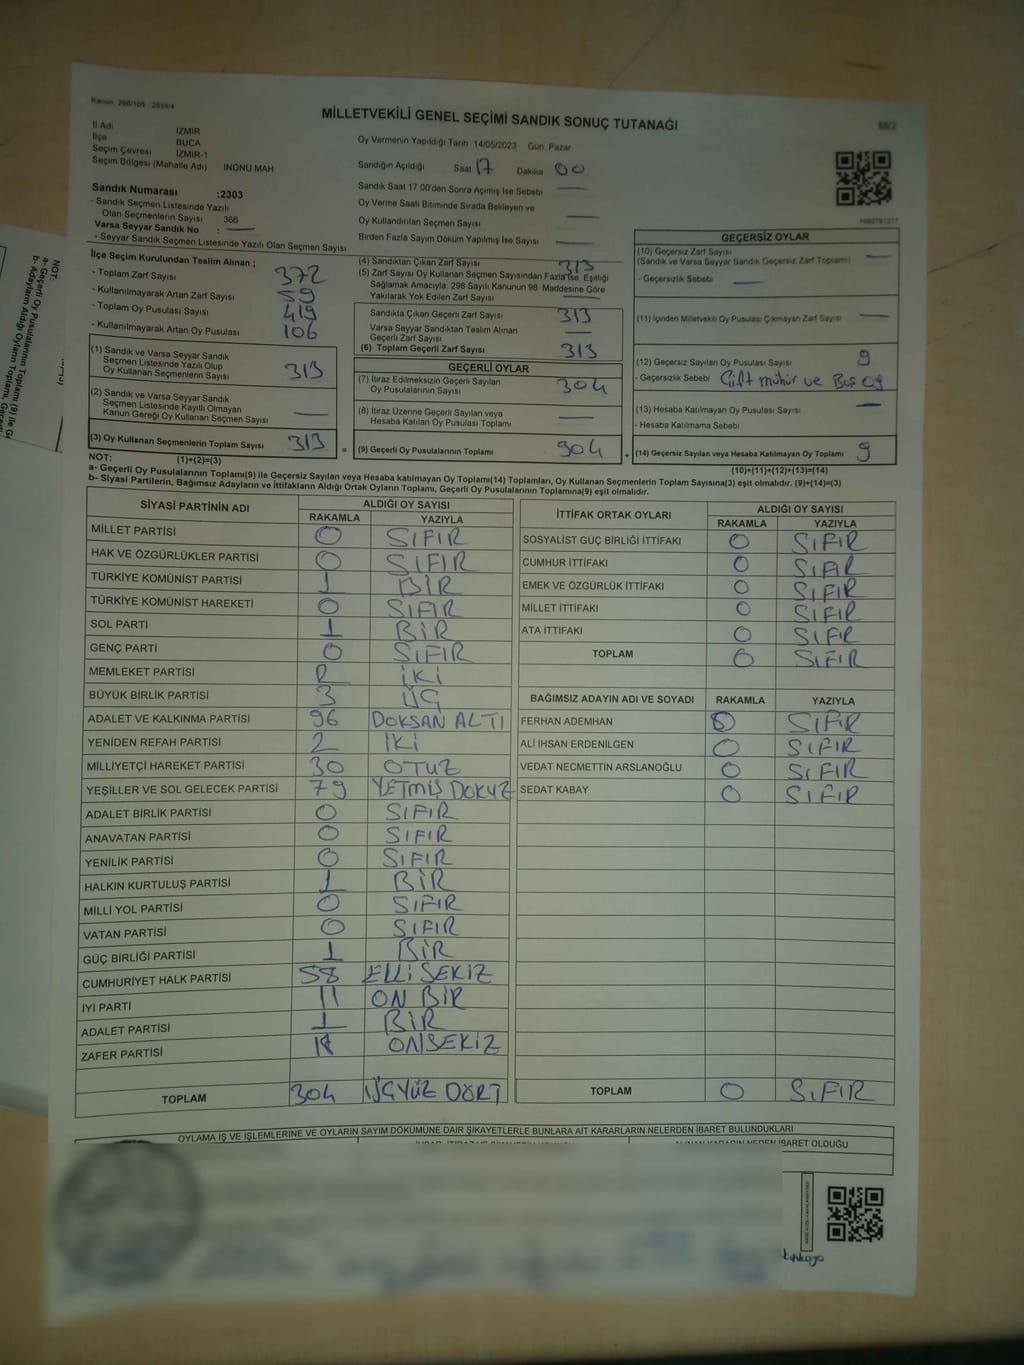 Kanun: 298/105 : 2839/4
MİLLETVEKİLİ GENEL SEÇİMİ SANDIK SONUÇ TUTANAĞI
İl Adı İZMİR
İlçe BUCA
Seçim Çevresi İZMİR-1
Seçim Bölgesi (Mahalle Adı) İNÖNÜ MAH
Oy Vermenin Yapıldığı Tarih 14/05/2023 Gün Pazar
Sandığın Açıldığı Saat 17 Dakika 00
Sandık Saat 17 00'den Sonra Açılmış İse Sebebi —
Oy Verme Saati Bitiminde Sırada Bekleyen ve
Oy Kullandırılan Seçmen Sayısı —
Birden Fazla Sayım Döküm Yapılmış İse Sayısı —
Sandık Numarası :2303
- Sandık Seçmen Listesinde Yazılı
Olan Seçmenlerin Sayısı 366
Varsa Seyyar Sandık No : —
- Seyyar Sandık Seçmen Listesinde Yazılı Olan Seçmen Sayısı
İlçe Seçim Kurulundan Teslim Alınan ;
- Toplam Zarf Sayısı 372
- Kullanılmayarak Artan Zarf Sayısı 59
- Toplam Oy Pusulası Sayısı 419
- Kullanılmayarak Artan Oy Pusulası 106
(1) Sandık ve Varsa Seyyar Sandık
Seçmen Listesinde Yazılı Olup
Oy Kullanan Seçmenlerin Sayısı 313
(2) Sandık ve Varsa Seyyar Sandık
Seçmen Listesinde Kayıtlı Olmayan
Kanun Gereği Oy Kullanan Seçmen Sayısı —
(3) Oy Kullanan Seçmenlerin Toplam Sayısı 313 =
(4) Sandıktan Çıkan Zarf Sayısı 313
(5) Zarf Sayısı Oy Kullanan Seçmen Sayısından Fazla İse, Eşitliği
Sağlamak Amacıyla, 298 Sayılı Kanunun 98 Maddesine Göre
Yakılarak Yok Edilen Zarf Sayısı —
Sandıkta Çıkan Geçerli Zarf Sayısı 313
Varsa Seyyar Sandıktan Teslim Alınan
Geçerli Zarf Sayısı —
(6) Toplam Geçerli Zarf Sayısı 313
GEÇERLİ OYLAR
(7) İtiraz Edilmeksizin Geçerli Sayılan
Oy Pusulalarının Sayısı 304
(8) İtiraz Üzerine Geçerli Sayılan veya
Hesaba Katılan Oy Pusulası Toplamı —
(9) Geçerli Oy Pusulalarının Toplamı 304 +
GEÇERSİZ OYLAR
(10) Geçersiz Zarf Sayısı
(Sandık ve Varsa Seyyar Sandık Geçersiz Zarf Toplamı) —
- Geçersizlik Sebebi —
(11) İçinden Milletvekili Oy Pusulası Çıkmayan Zarf Sayısı —
(12) Geçersiz Sayılan Oy Pusulası Sayısı 9
- Geçersizlik Sebebi Çift mühür ve Boş oy
(13) Hesaba Katılmayan Oy Pusulası Sayısı —
- Hesaba Katılmama Sebebi
(14) Geçersiz Sayılan veya Hesaba Katılmayan Oy Toplamı 9
NOT: (1)+(2)=(3) (10)+(11)+(12)+(13)=(14)
a- Geçerli Oy Pusulalarının Toplamı(9) ile Geçersiz Sayılan veya Hesaba katılmayan Oy Toplamı(14) Toplamları, Oy Kullanan Seçmenlerin Toplam Sayısına(3) eşit olmalıdır. (9)+(14)=(3)
b- Siyasi Partilerin, Bağımsız Adayların ve İttifakların Aldığı Ortak Oyların Toplamı, Geçerli Oy Pusulalarının Toplamına(9) eşit olmalıdır.
SİYASİ PARTİNİN ADI ALDIĞI OY SAYISI
RAKAMLA YAZIYLA
MİLLET PARTİSİ 0 SIFIR
HAK VE ÖZGÜRLÜKLER PARTİSİ 0 SIFIR
TÜRKİYE KOMÜNİST PARTİSİ 1 BİR
TÜRKİYE KOMÜNİST HAREKETİ 0 SIFIR
SOL PARTİ 1 BİR
GENÇ PARTİ 0 SIFIR
MEMLEKET PARTİSİ 2 İKİ
BÜYÜK BİRLİK PARTİSİ 3 ÜÇ
ADALET VE KALKINMA PARTİSİ 96 DOKSAN ALTI
YENİDEN REFAH PARTİSİ 2 İKİ
MİLLİYETÇİ HAREKET PARTİSİ 30 OTUZ
YEŞİLLER VE SOL GELECEK PARTİSİ 79 YETMİŞ DOKUZ
ADALET BİRLİK PARTİSİ 0 SIFIR
ANAVATAN PARTİSİ 0 SIFIR
YENİLİK PARTİSİ 0 SIFIR
HALKIN KURTULUŞ PARTİSİ 1 BİR
MİLLİ YOL PARTİSİ 0 SIFIR
VATAN PARTİSİ 0 SIFIR
GÜÇ BİRLİĞİ PARTİSİ 1 BİR
CUMHURİYET HALK PARTİSİ 58 ELLİ SEKİZ
İYİ PARTİ 11 ON BİR
ADALET PARTİSİ 1 BİR
ZAFER PARTİSİ 18 ONSEKİZ
TOPLAM 304 ÜÇYÜZ DÖRT
İTTİFAK ORTAK OYLARI ALDIĞI OY SAYISI
RAKAMLA YAZIYLA
SOSYALİST GÜÇ BİRLİĞİ İTTİFAKI 0 SIFIR
CUMHUR İTTİFAKI 0 SIFIR
EMEK VE ÖZGÜRLÜK İTTİFAKI 0 SIFIR
MİLLET İTTİFAKI 0 SIFIR
ATA İTTİFAKI 0 SIFIR
TOPLAM 0 SIFIR
BAĞIMSIZ ADAYIN ADI VE SOYADI RAKAMLA YAZIYLA
FERHAN ADEMHAN 0 SIFIR
ALİ İHSAN ERDENİLGEN 0 SIFIR
VEDAT NECMETTİN ARSLANOĞLU 0 SIFIR
SEDAT KABAY 0 SIFIR
TOPLAM 0 SIFIR
OYLAMA İŞ VE İŞLEMLERİNE VE OYLARIN SAYIM DÖKÜMÜNE DAİR ŞİKAYETLERLE BUNLARA AİT KARARLARIN NELERDEN İBARET BULUNDUKLARI
ALINAN KARARIN NEDEN İBARET OLDUĞU